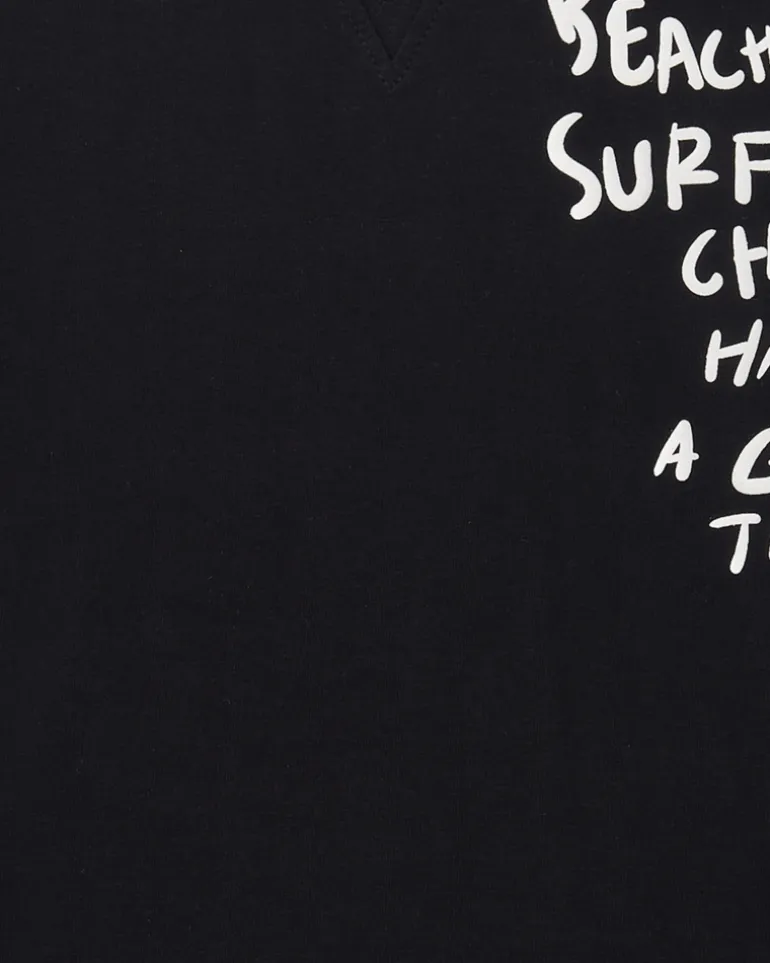 BEACH
SURF
CH
HA
A G
T